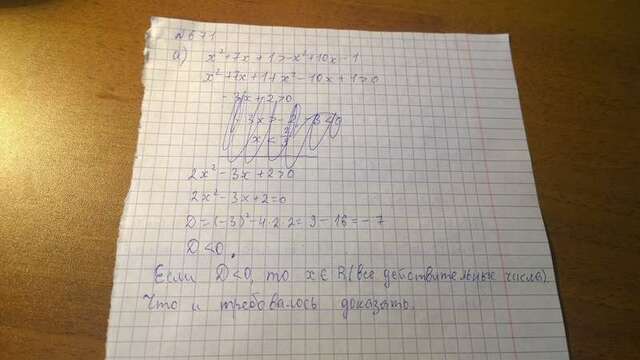 №671
а) x²+7x+1>-x²+10x-1
x²+7x+1+x²-10x+1>0
-3x+2>0
-3x>-2
x<2/3
2x²-3x+2>0
2x²-3x+2=0
D=(-3)²-4·2·2=9-16=-7
D<0.
Если D<0, то x∈R(все действительные числа).
Что и требовалось доказать.